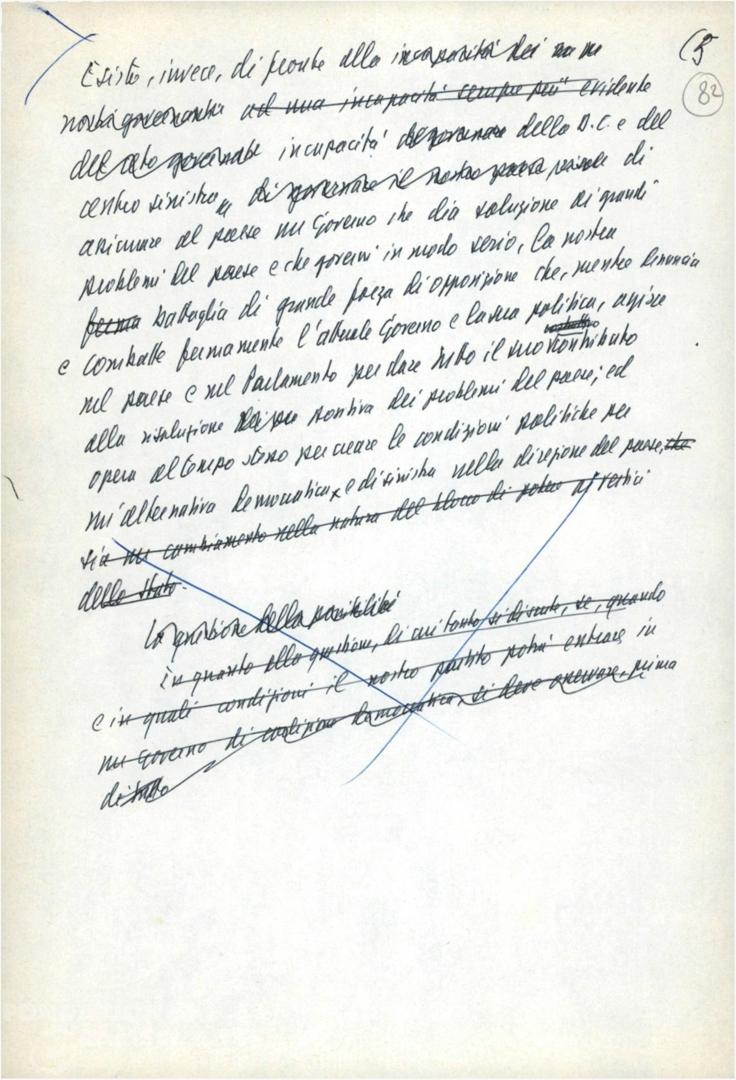 (5
82
Esiste, invece, di fronte alla incapacità dei
nostri governanti ad una incapacità sempre più evidente
del ceto governate incapacità di governare della D.C. e del
centro sinistra di governare il nostro paese di
assicurare al paese un Governo che dia soluzione ai grandi
problemi del paese e che governi in modo serio, la nostra
ferma battaglia di grande forza di opposizione che, mentre denuncia
e combatte fermamente l'attuale Governo e la sua politica, agisce
nel paese e nel Parlamento per dare tutto il suo contributo
alla risoluzione positiva dei problemi del paese; ed
opera al tempo stesso per creare le condizioni politiche per
un'alternativa democratica e di sinistra nella direzione del paese, che
sia un cambiamento nella natura del blocco di potere ai vertici
dello Stato.
La questione della possibilità
in quanto alla questione, di cui tanto si discute, se, quando
e in quali condizioni il nostro partito potrà entrare in
un Governo di coalizione democratica, si deve osservare, prima
di tutto